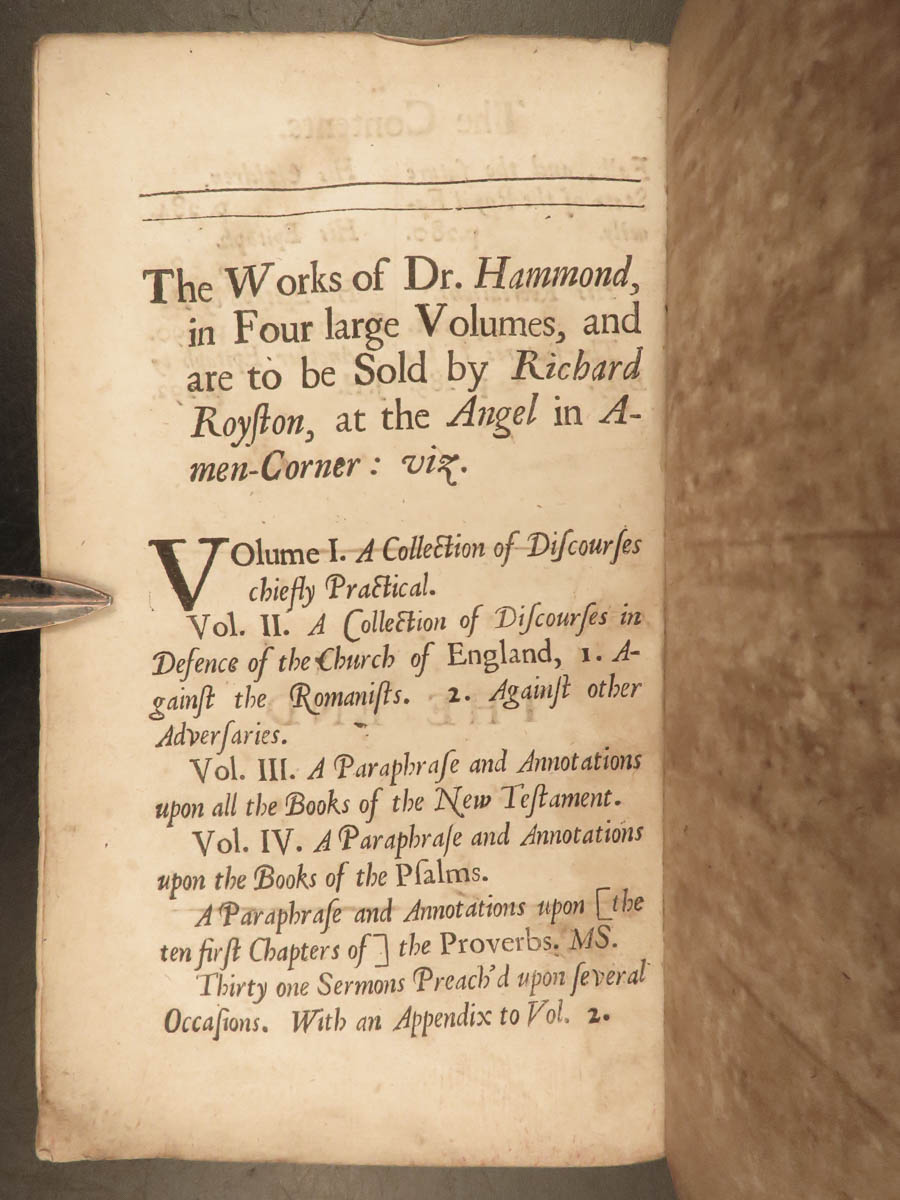 The Works of Dr. Hammond,
in Four large Volumes, and
are to be Sold by Richard
Royſton, at the Angel in A-
men-Corner: viz.
VOlume I. A Collection of Diſcourſes
chiefly Practical.
Vol. II. A Collection of Diſcourſes in
Defence of the Church of England, 1. A-
gainſt the Romaniſts. 2. Againſt other
Adverſaries.
Vol. III. A Paraphraſe and Annotations
upon all the Books of the New Teſtament.
Vol. IV. A Paraphraſe and Annotations
upon the Books of the Pſalms.
A Paraphraſe and Annotations upon [the
ten firſt Chapters of] the Proverbs. MS.
Thirty one Sermons Preach'd upon ſeveral
Occaſions. With an Appendix to Vol. 2.